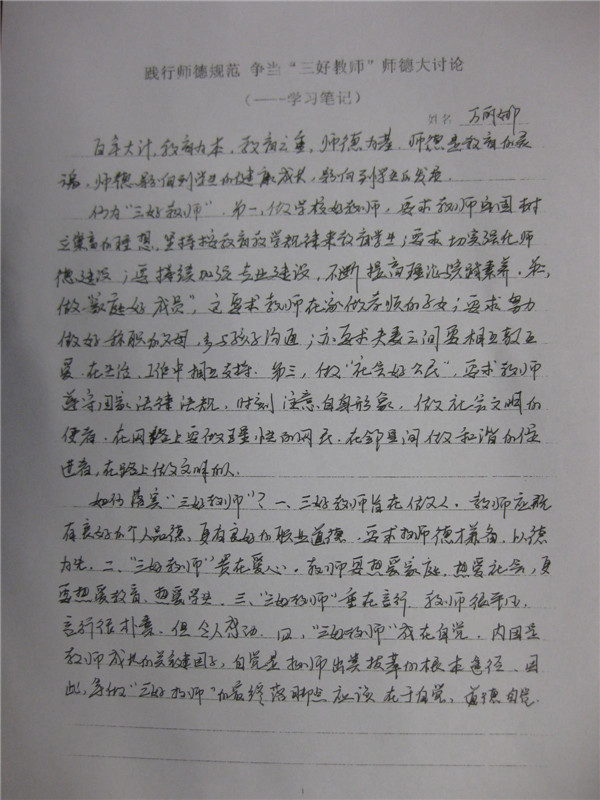 践行师德规范 争当“三好教师”师德大讨论
(——学习笔记)
姓名 万丽娜
百年大计,教育为本,教育之重,师德为基。师德是教育的灵
魂,师德影响到学生的健康成长,影响到学生的发展。
何为“三好教师”,第一,做学校好教师,要求教师牢固树
立崇高的理想,坚持按教育教学规律来教育学生;要求切实强化师
德建设;要持续加强专业建设,不断提高理论 素养。第二,
做“家庭好成员”,这要求教师在家做孝顺的子女;要求努力
做好称职的父母,多与孩子沟通;亦要求夫妻之间要相互敬互
爱,在生活、工作中相互支持。第三,做“社会好公民”,要求教师
遵守国家法律法规,时刻注意自身形象,做社会文明的
使者,在网路上要做理性的网民,在邻里间做和谐的促
进者,在路上做文明的人。
如何落实“三好教师”?一、三好教师旨在做人。教师应既
有良好的个人品德,更有良好的职业道德,要求教师德才兼备,以德
为先。二、“三好教师”贵在爱心。教师要热爱家庭,热爱社会,更
要热爱教育、热爱学生。三、“三好教师”重在言行。教师很平凡,
言行很朴素,但令人感动。四、“三好教师”成在自觉。内因是
教师成长的关键因子,自觉是教师出类拔萃的根本途径。因
此,争做“三好教师”的最终落脚点应该在于自觉、道德自觉.